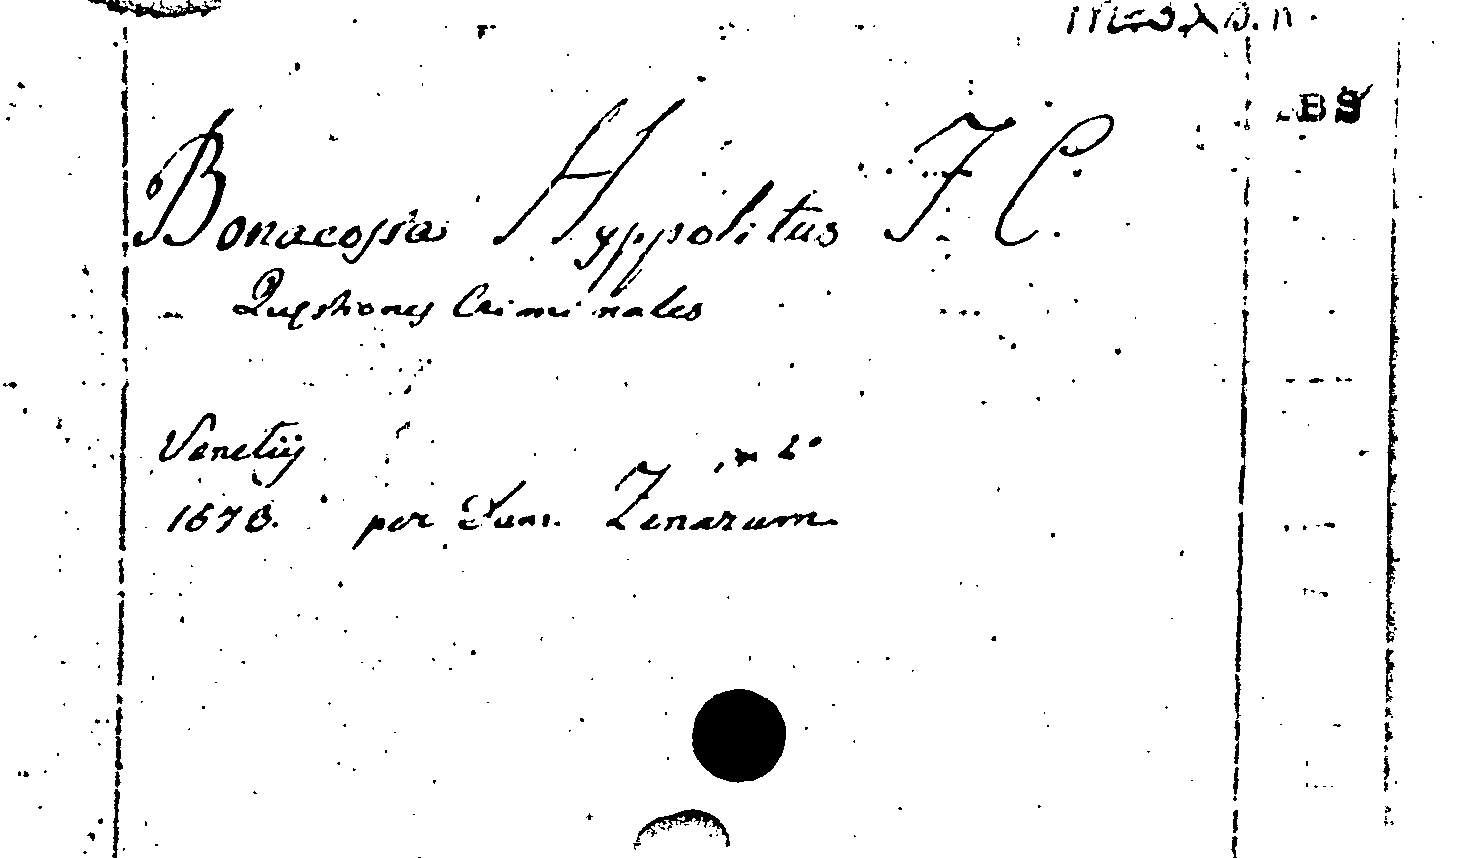 BS
Bonacossa Hyppolitus J. C.
Questiones Criminales
Venetiis in 2°
1573. per Dam. Zenarum